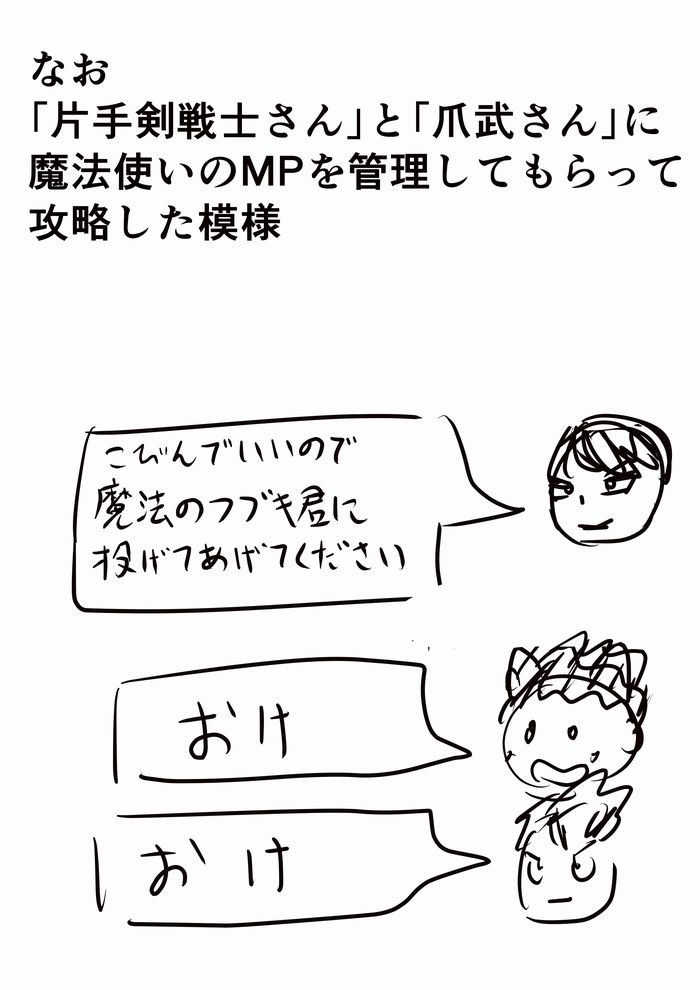 なお
「片手剣戦士さん」と「爪武さん」に
魔法使いのMPを管理してもらって
攻略した模様
こびんでいいので
魔法のフブキ君に
投げてあげてください
おけ
おけ